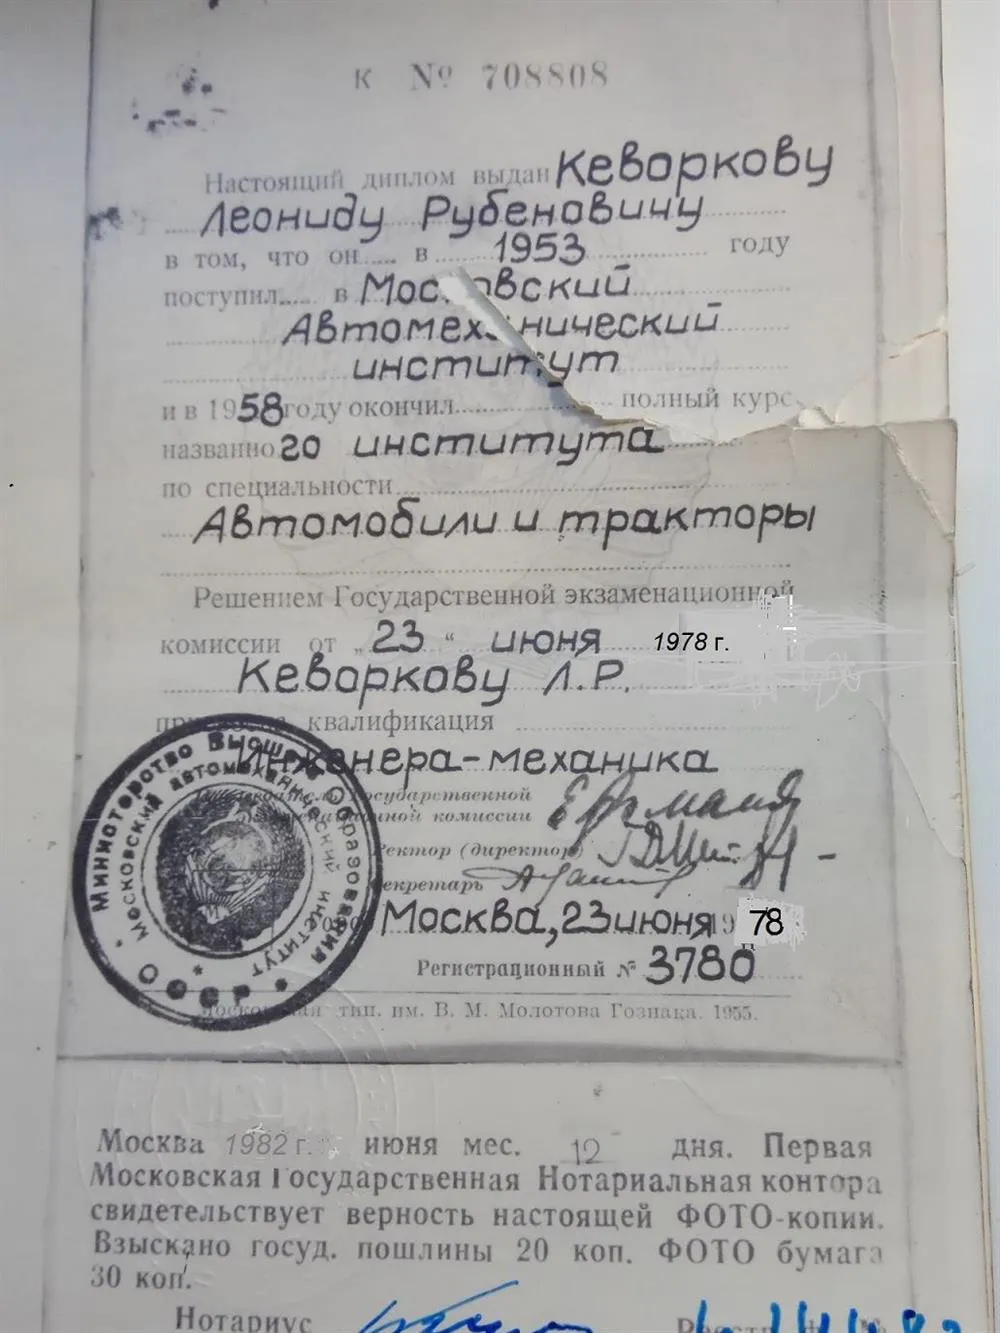 К № 708808
Настоящий диплом выдан Кеворкову
Леониду Рубеновичу
в том, что он в 1953 году
поступил в Мос овский
Автомех нический
институт
и в 1958 году окончил полный курс
названного института
по специальности
Автомобили и тракторы
Решением Государственной экзаменационной
комиссии от „23“ июня 1978 г.
Кеворкову Л.Р.
квалификация
Инженера-механика
Государственной
комиссии
Ректор (директор)
Секретарь
Москва, 23 июня 19 78
Регистрационный № 3780
Министерство Высшего Образования СССР
Московский автомеханический институт
Московская тип. им. В. М. Молотова Гознака. 1955.
Москва 1982 г. июня мес. 12 дня. Первая
Московская Государственная Нотариальная контора
свидетельствует верность настоящей ФОТО-копии.
Взыскано госуд. пошлины 20 коп. ФОТО бумага
30 коп.
Нотариус